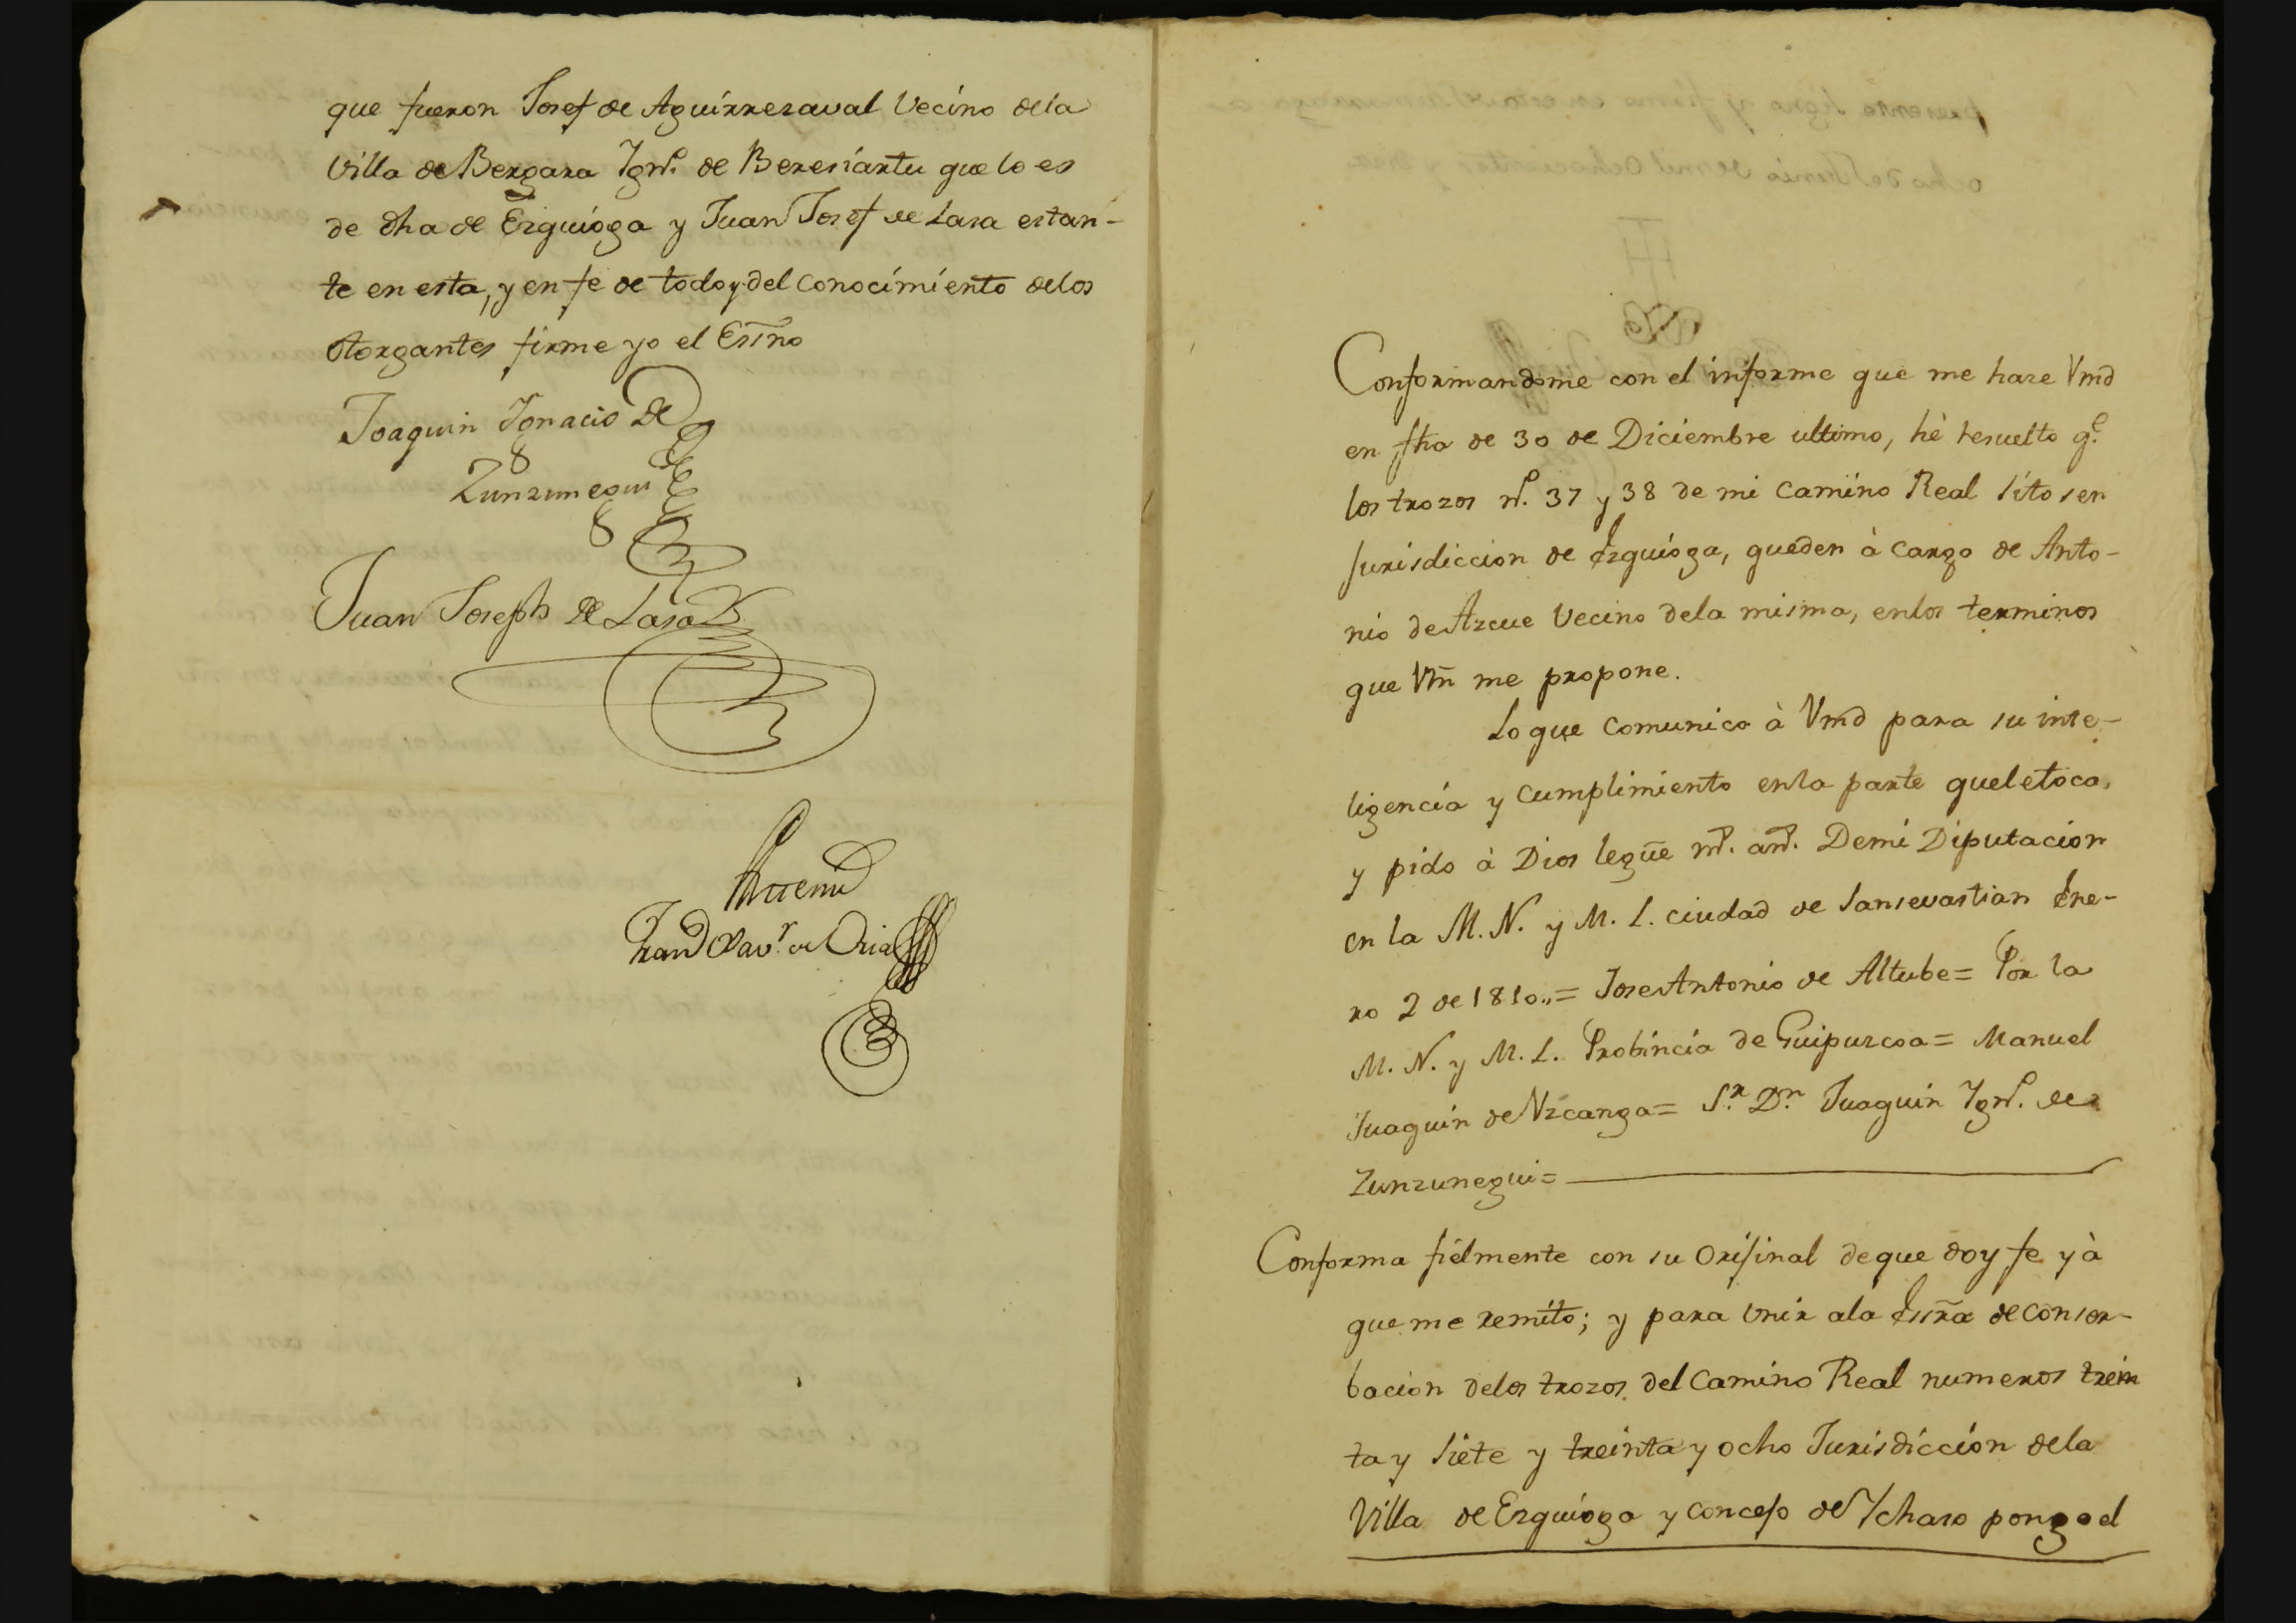 que fueron Josef de Aguirresaval Vecino dela
Villa de Bergara Ygnº. de Beresiartu que lo es
de dha de Ezquioga y Juan Josef de Lasa estan-
te en esta, y en fe de todo y del conocimiento delos
Otorgantes firme yo el Essno
Joaquin Ygnacio de
Zunzunegui
Juan Joseph de Lasa
Antemi
Franco Xavr. de Oria
Conformandome con el informe que me hase Vmd
en fha de 30 de Diciembre ultimo, hè resuelto qe.
los trozos nº. 37 y 38 de mi Camino Real sitos en
Jurisdiccion de Ezquioga, queden à cargo de Anto-
nio de Azcue Vecino dela misma, enlos terminos
que Vm me propone.
Lo que comunico à Vmd para su inte-
ligencia y cumplimiento enla parte queletoca,
y pido à Dios legue ms. as. Demi Diputacion
en la M. N. y M. L. ciudad de Sansevastian Ene-
ro 2 de 1810.,= Jose Antonio de Altube= Por la
M. N. y M. L. Probincia de Guipuzcoa= Manuel
Juaquin de Uzcanga= Sr. Dn. Juaquin Ygnº. de
Zunzunegui=
Conforma fielmente con su Orijinal deque doy fe y à
que me remito; y para Unir ala Essra de conser-
bacion delos trozos del Camino Real numeros trein
ta y siete y treinta y ocho Jurisdiccion dela
Villa de Ezquioga y concejo de Ychaso pongo el